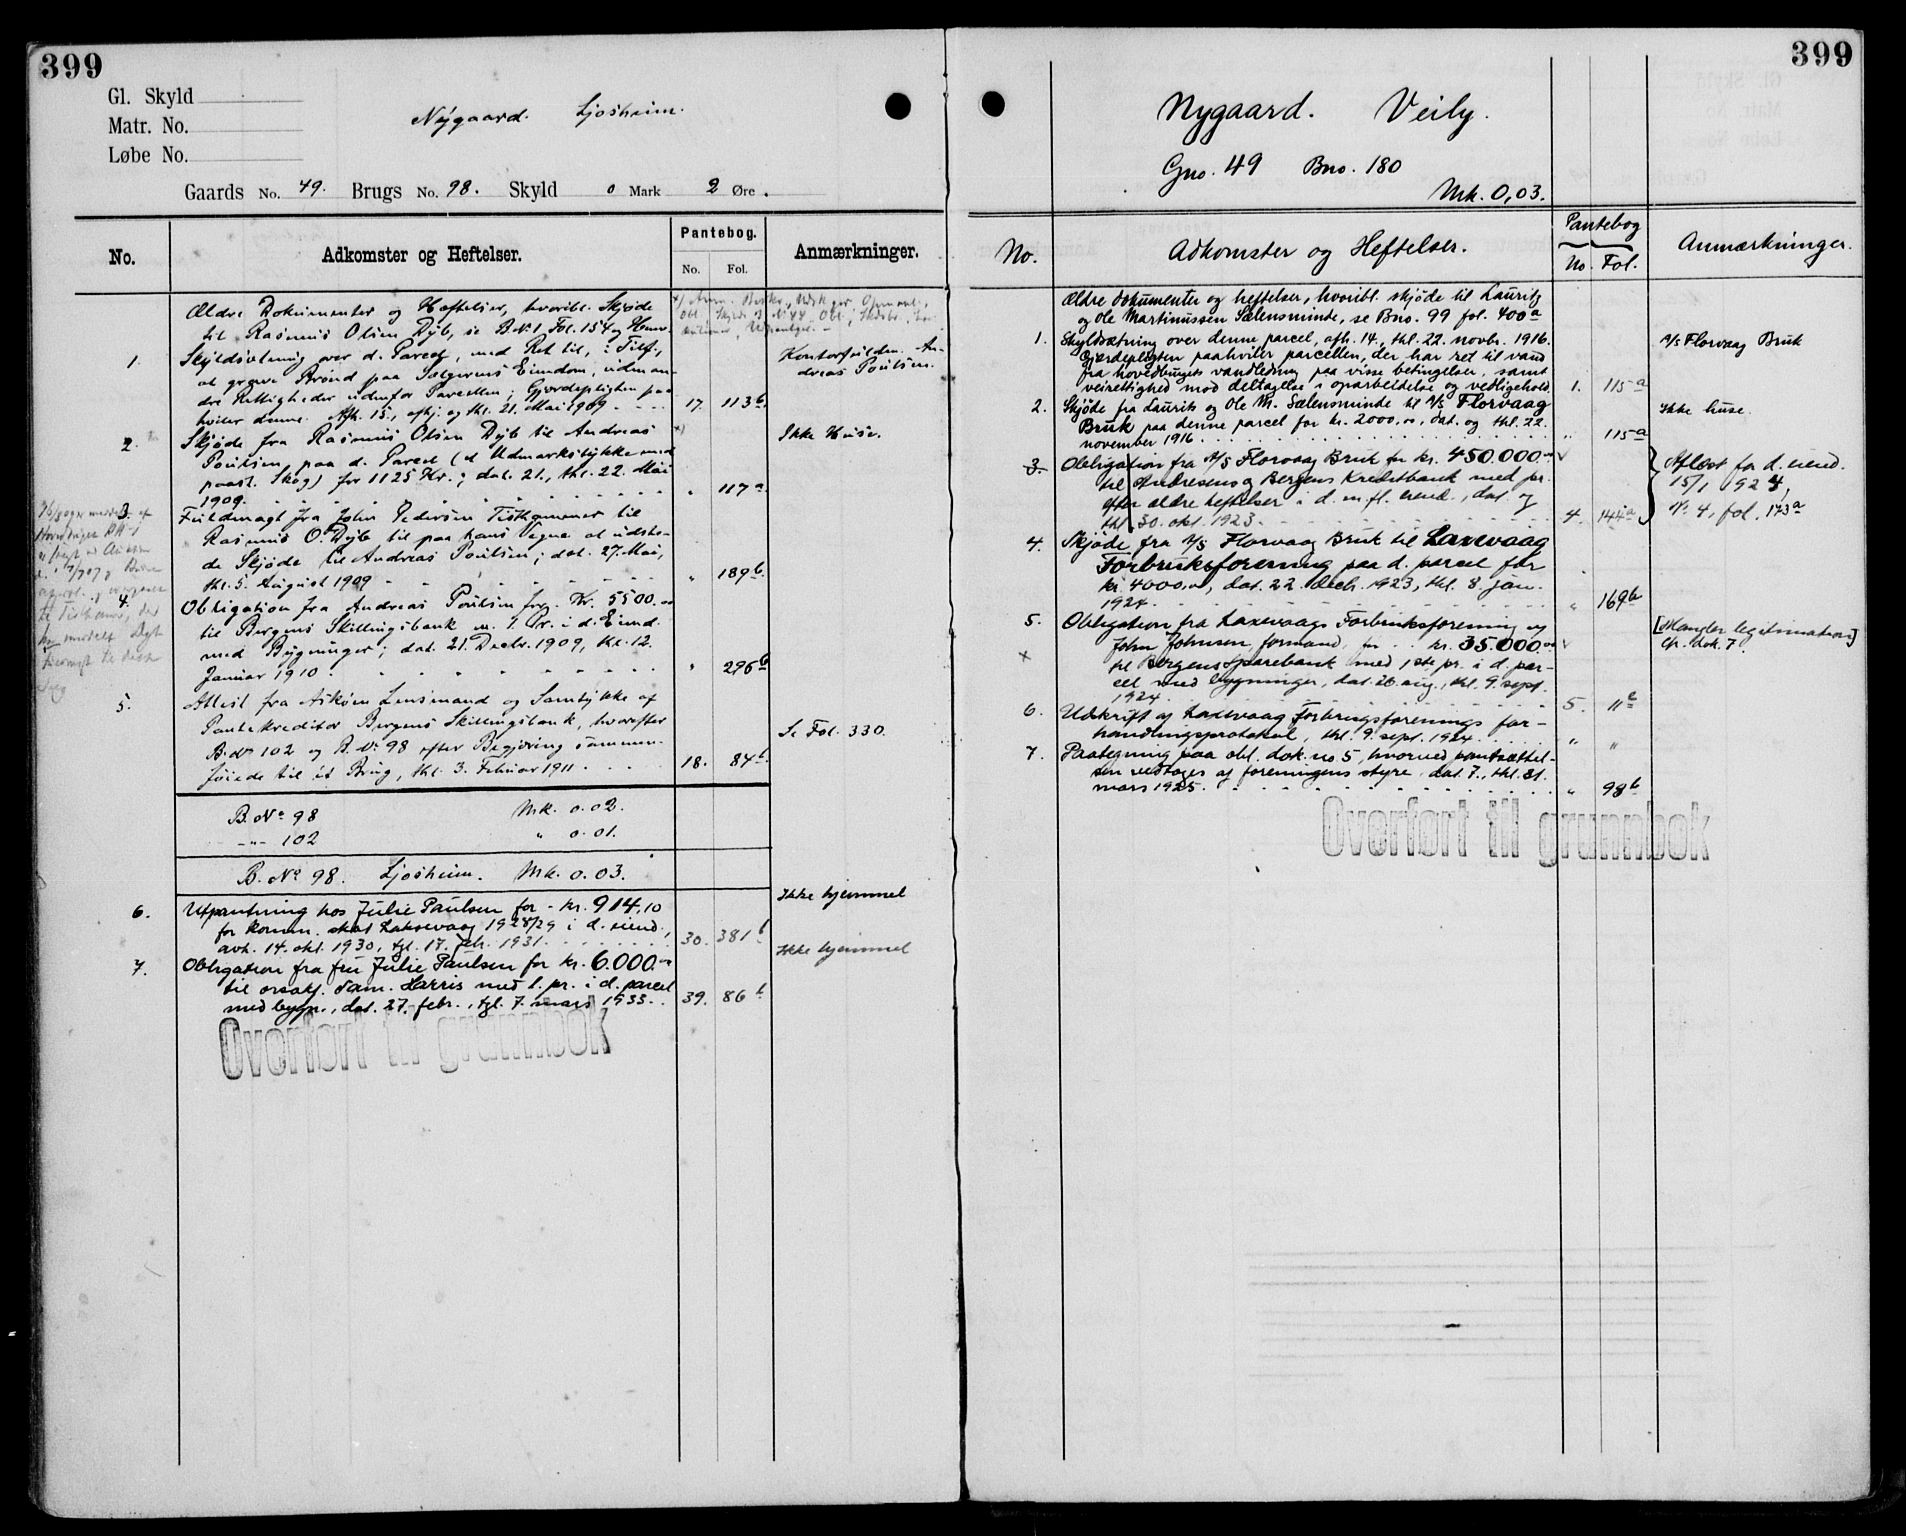 399
Gl. Skyld
Matr. No.
Løbe No.
Nygaard. Ljosheim.
Gaards No. 49. Brugs No. 98. Skyld 0 Mark 2 Øre.
No. Adkomster og Heftelser. Pantebog. No. Fol. Anmærkninger.
Ældre Dokumenter og Heftelser, hvoribl. Skjøde
til Rasmus Olsen Dyb, se B.N. 1, Fol. 154
1. Skyldsætning over d. Parcel, med Ret til, i Tilf.,
at grave Brønd paa Sælgerens Eiendom, uden an-
dre Rettigheder udenfor Parcellen; Gjerdepligten paa-
hviler denne. Afh. 15., afhj. og thl. 21. Mai 1909 17. 113b
Kontorfuldm. An-
dreas Poulsen.
2. Skjøde fra Rasmus Olsen Dyb til Andreas
Poulsen paa d. Parcel (et Udmarkstykke med
paast. Skog) for 1125 Kr.; dat. 21., thl. 22. Mai
1909. " 117a
Ikke Huse.
3. Fuldmagt fra John Pedersen Tisthammer til
Rasmus O. Dyb til paa hans Vegne at udste-
de Skjøde til Andreas Poulsen; dat. 27. Mai,
thl. 5. August 1909 " 189b
4. Obligation fra Andreas Poulsen for Kr. 5500.00
til Bergens Skillingsbank m. 1. Pr. i d. Eiend.
med Bygninger; dat. 21. Decbr. 1909, thl. 12.
Januar 1910. " 296b
5. Attest fra Askøen Lensmand og Samtykke af
Pantekreditor Bergens Skillingsbank, hvorefter
B.No 102 og B.No 98 efter Begjæring sammen-
føiede til ét Brug, thl. 3. Februar 1911 18. 84b
Se Fol. 330.
B.No 98 Mk. 0.02.
-"- 102 " 0.01.
B.No 98. Ljosheim. Mk. 0.03.
6. Utpantning hos Julie Paulsen for - kr. 914,10
for komm. skat Laksevaag 1928/29 i d. eiend.,
avh. 14. okt. 1930, tgl. 17. febr. 1931. 30. 381b
Ikke hjemmel
7. Obligation fra fru Julie Paulsen for kr. 6.000.00
til orsakf. Sam. Harris med 1. pr. i d. parcel
med bygn., dat. 27. febr., tgl. 7. mars 1933. 39. 86b
Ikke hjemmel
Overført til grunnbok
399
Nygaard. Veily.
Gno. 49 Bno. 180
Mk. 0,03.
No. Adkomster og Heftelser. Pantebog No. Fol. Anmærkninger.
Ældre dokumenter og heftelser, hvoribl. skjøde til Lauritz
og Ole Martinussen Sælensminde, se Bno. 99 fol. 400a
1. Skyldsætning over denne parcel, afh. 14., thl. 22. novbr. 1916.
Gjærdepligten paahviler parcellen, der har ret til vand
fra hovedbrugets vandledning paa visse betingelser, samt
veirettighed mod deltagelse i oparbeidelse og vedligehold. 1. 115a
A/S Florvaag Bruk
2. Skjøde fra Laurits og Ole M. Sælensminde til A/S Florvaag
Bruk paa denne parcel for kr. 2000,00, dat. og thl. 22.
november 1916 " 115a
Ikke huse.
3. Obligation fra A/S Florvaag Bruk for kr. 450.000.00
til Andresens og Bergens Kreditbank med pr.
efter ældre heftelser i d. m. fl. eiend., dat. og
thl. 30. okt. 1923. 4. 144a
Aflæst for d. eiend.
15/1 1924,
No. 4, fol. 173a
4. Skjøde fra A/S Florvaag Bruk til Laxevaag
Forbruksforening paa d. parcel for
kr. 4000,00, dat. 22. decb. 1923, thl. 8. jan.
1924. " 169b
5. Obligation fra Laxevaags Forbruksforening og
John Johnsen, formand, for kr. 35.000.00
til Bergens Sparebank med 1ste pr. i d. par-
cel med bygninger, dat. 26. aug., thl. 9. sept.
1924 5. 11b
[Mangler legitimation]
Cfr. dok. 7.
6. Udskrift af Laxevaag Forbrugsforenings for-
handlingsprotokol, thl. 9. sept. 1924. " "
7. Paategning paa obl. dok. no 5, hvorved pantsættel-
sen vedtages af foreningens styre, dat. 7., thl. 21.
mars 1925. " 98b
Overført til grunnbok